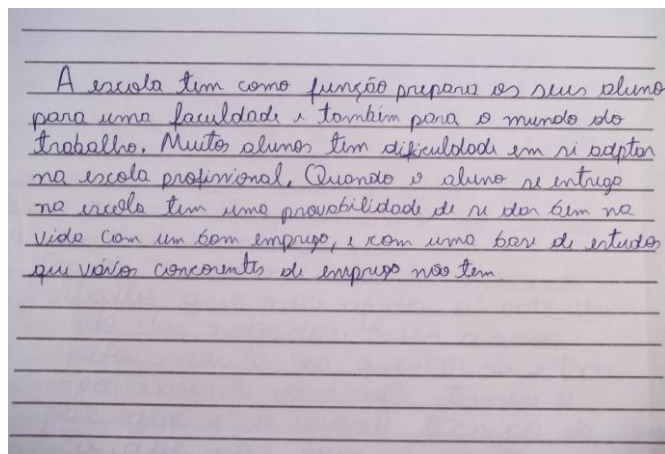 A escola tem como função prepara os seus aluno
para uma faculdade e também para o mundo do
trabalho. Muitos alunos tem dificuldade em si adptar
na escola profissional. Quando o aluno se entrega
na escola tem uma provabilidade de se dar bem na
vida com um bom emprego, e com uma base de estudos
que vários concorentes de emprego não tem